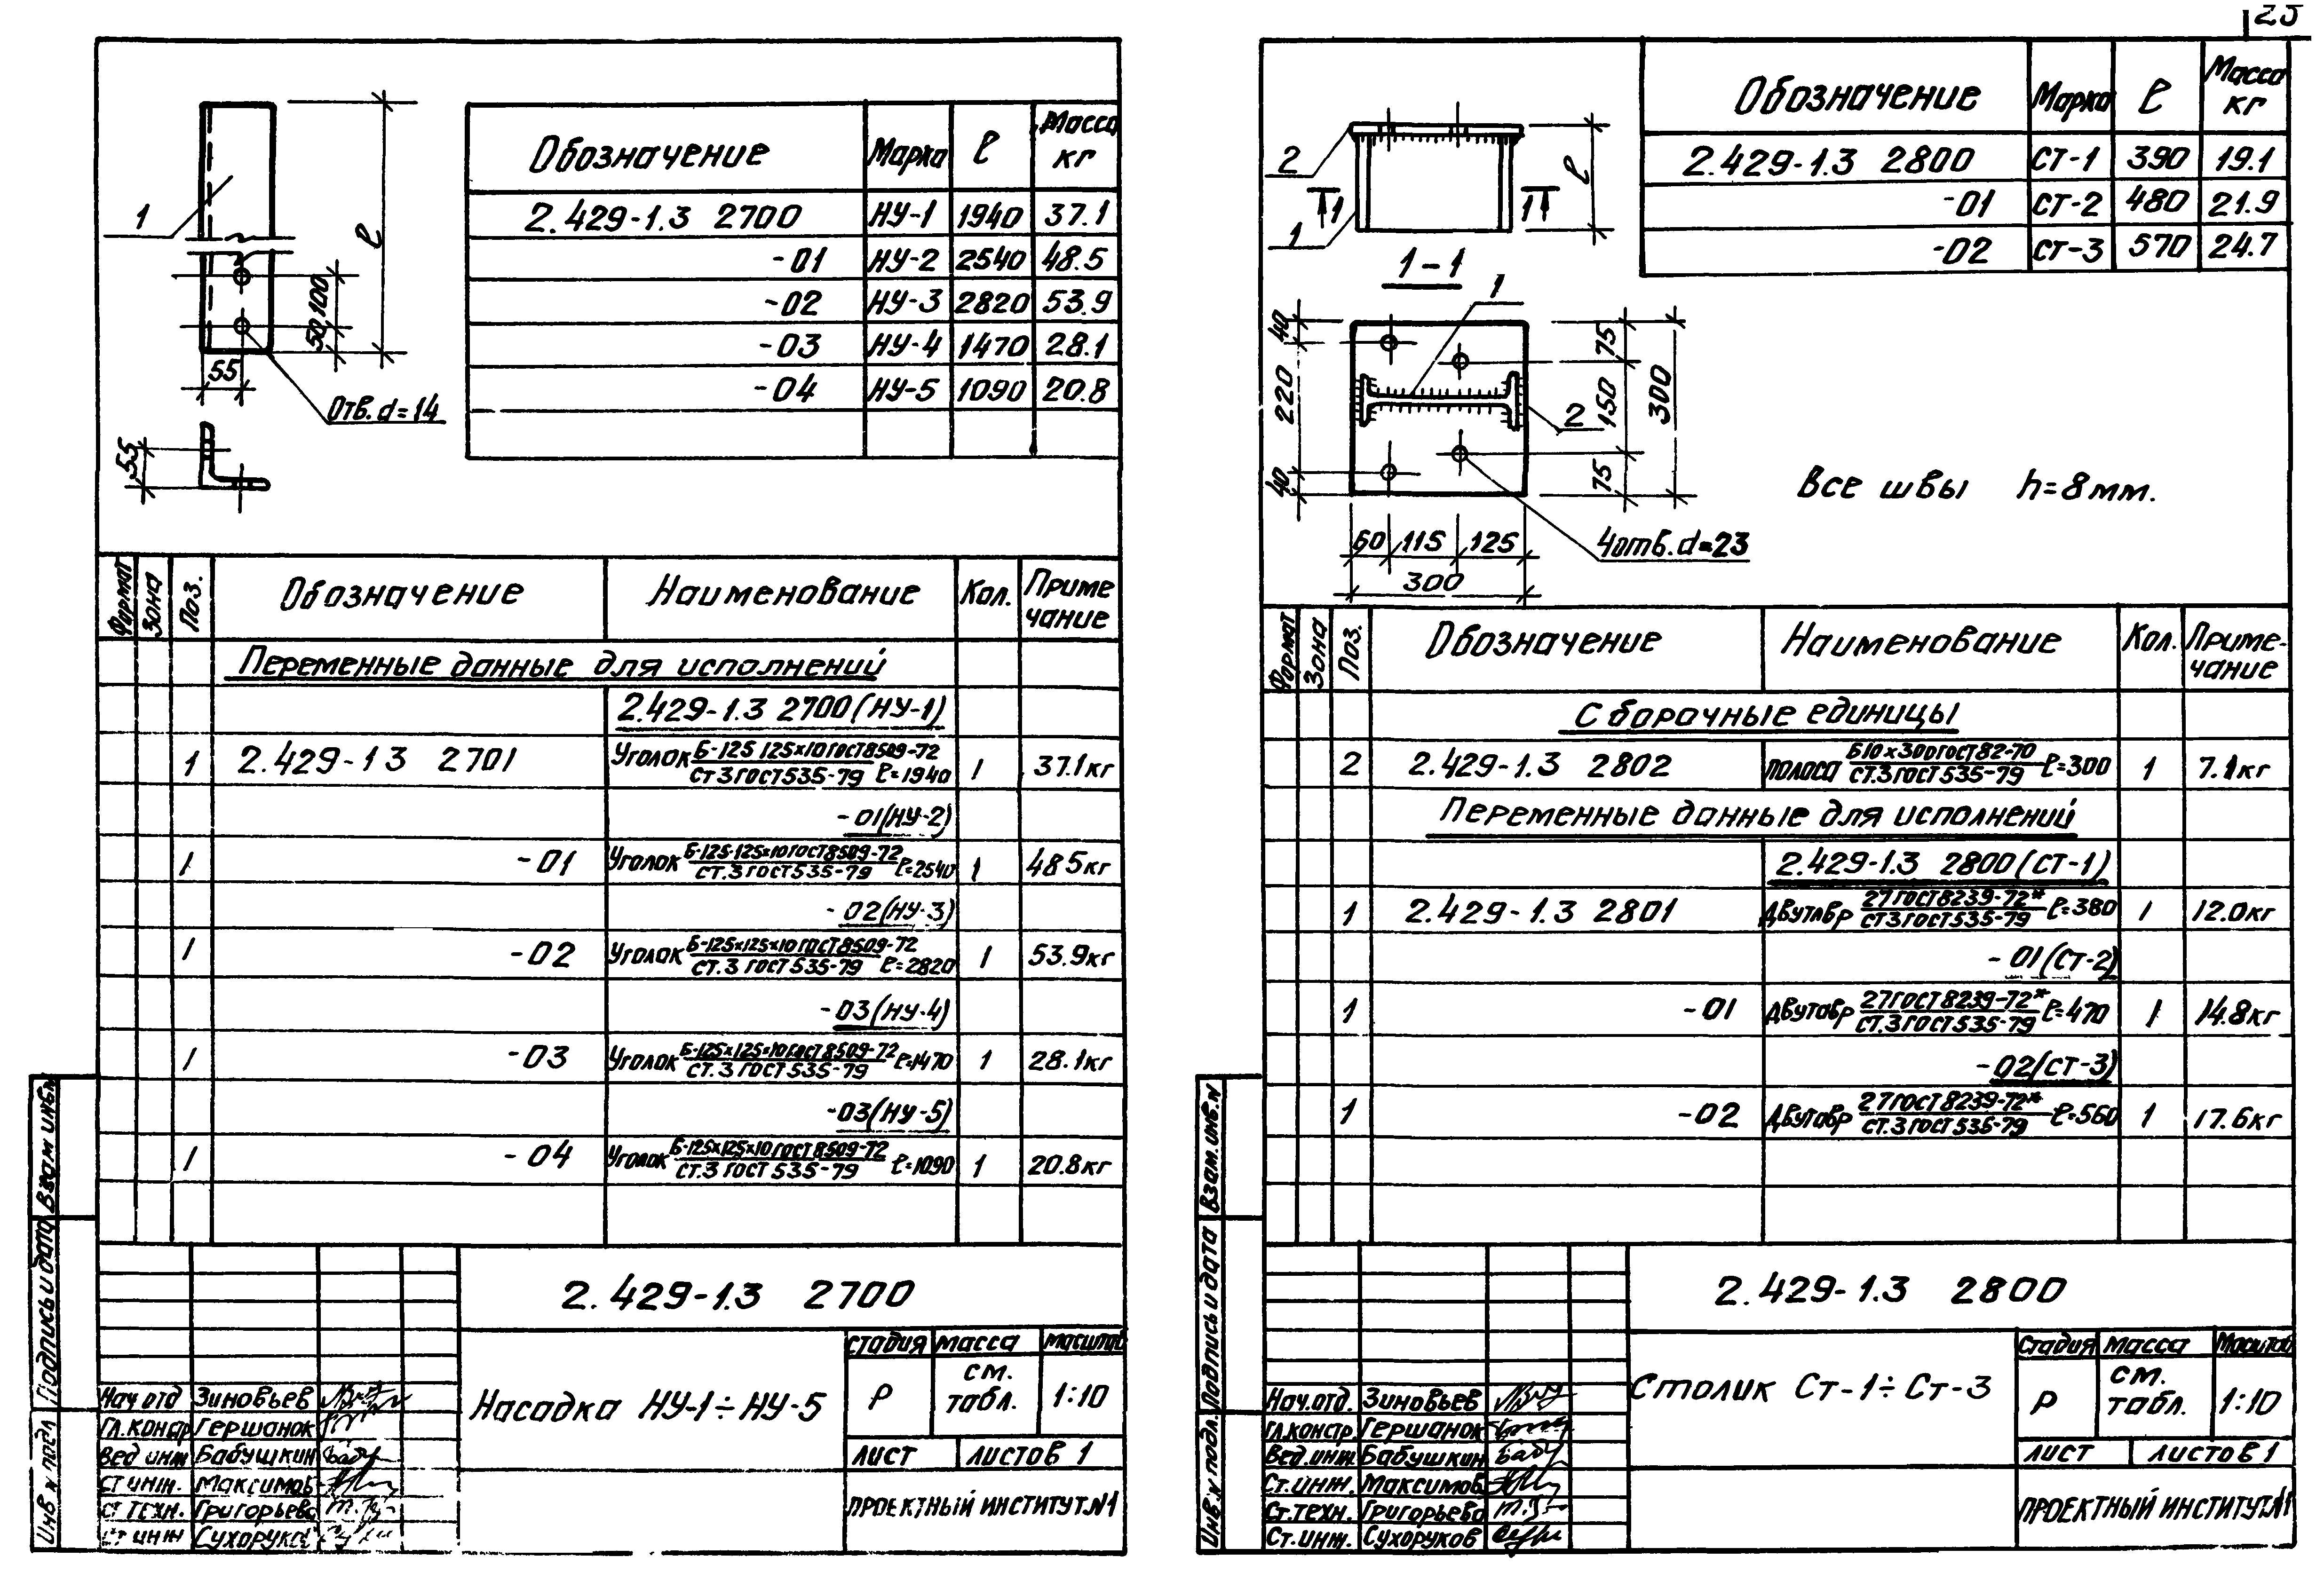 25
1
l
100
50
55
Отв. d=14
55
Обозначение Марка l Масса кг
2.429-1.3 2700 НУ-1 1940 37.1
-01 НУ-2 2540 48.5
-02 НУ-3 2820 53.9
-03 НУ-4 1470 28.1
-04 НУ-5 1090 20.8
Формат Зона Поз. Обозначение Наименование Кол. Приме
чание
Переменные данные для исполнений
2.429-1.3 2700 (НУ-1)
1 2.429-1 3 2701 Уголок Б-125 125х10 ГОСТ 8509-72 1 37.1кг
Ст 3 ГОСТ 535-79 l=1940
-01(НУ-2)
1 -01 Уголок Б-125-125х10 ГОСТ 8509-72 l=2540 1 48 5кг
Ст.3 ГОСТ 535-79
-02(НУ-3)
1 -02 Уголок Б-125х125х10 ГОСТ 8509-72 1 53.9кг
Ст.3 ГОСТ 535-79 l=2820
-03(НУ-4)
1 -03 Уголок Б-125х125х10 ГОСТ 8509-72 l=1470 1 28.1кг
Ст.3 ГОСТ 535-79
-03(НУ-5)
1 -04 Уголок Б-125х125х10 ГОСТ 8509-72 l=1090 1 20.8кг
Ст.3 ГОСТ 535-79
Взам инв.№
Подпись и дата
Инв № подл
2.429-1.3 2700
Насадка НУ-1÷НУ-5
Стадия Масса Масштаб
Р см. табл. 1:10
Лист Листов 1
Проектный институт №1
Нач отд Зиновьев
Гл.констр Гершанок
Вед инж Бабушкин
Ст инж. Максимов
Ст техн. Григорьева
Ст инж Сухоруков
2
1
1 1
l
1-1
1
2
40
220
40
75
150
75
300
60 115 125
300
4отв. d=23
Все швы h=8мм.
Обозначение Марка l Масса кг
2.429-1.3 2800 СТ-1 390 19.1
-01 СТ-2 480 21.9
-02 СТ-3 570 24.7
Формат Зона Поз. Обозначение Наименование Кол. Приме-
чание
Сборочные единицы
2 2.429-1.3 2802 Полоса Б10х300 ГОСТ 82-70 l=300 1 7.1кг
Ст.3 ГОСТ 535-79
Переменные данные для исполнений
2.429-1.3 2800 (СТ-1)
1 2.429-1.3 2801 Двутавр 27 ГОСТ 8239-72* l=380 1 12.0кг
Ст 3 ГОСТ 535-79
-01(СТ-2)
1 -01 Двутавр 27 ГОСТ 8239-72* l=470 1 14.8кг
Ст.3 ГОСТ 535-79
-02(СТ-3)
1 -02 Двутавр 27 ГОСТ 8239-72* l=560 1 17.6кг
Ст.3 ГОСТ 535-79
Взам.инв.№
Подпись и дата
Инв.№ подл.
2.429-1.3 2800
Столик Ст-1÷Ст-3
Стадия Масса Масштаб
Р см. табл. 1:10
Лист Листов 1
Проектный институт №1
Нач.отд. Зиновьев
Гл.констр. Гершанок
Вед.инж. Бабушкин
Ст.инж. Максимов
Ст.техн. Григорьева
Ст.инж. Сухоруков